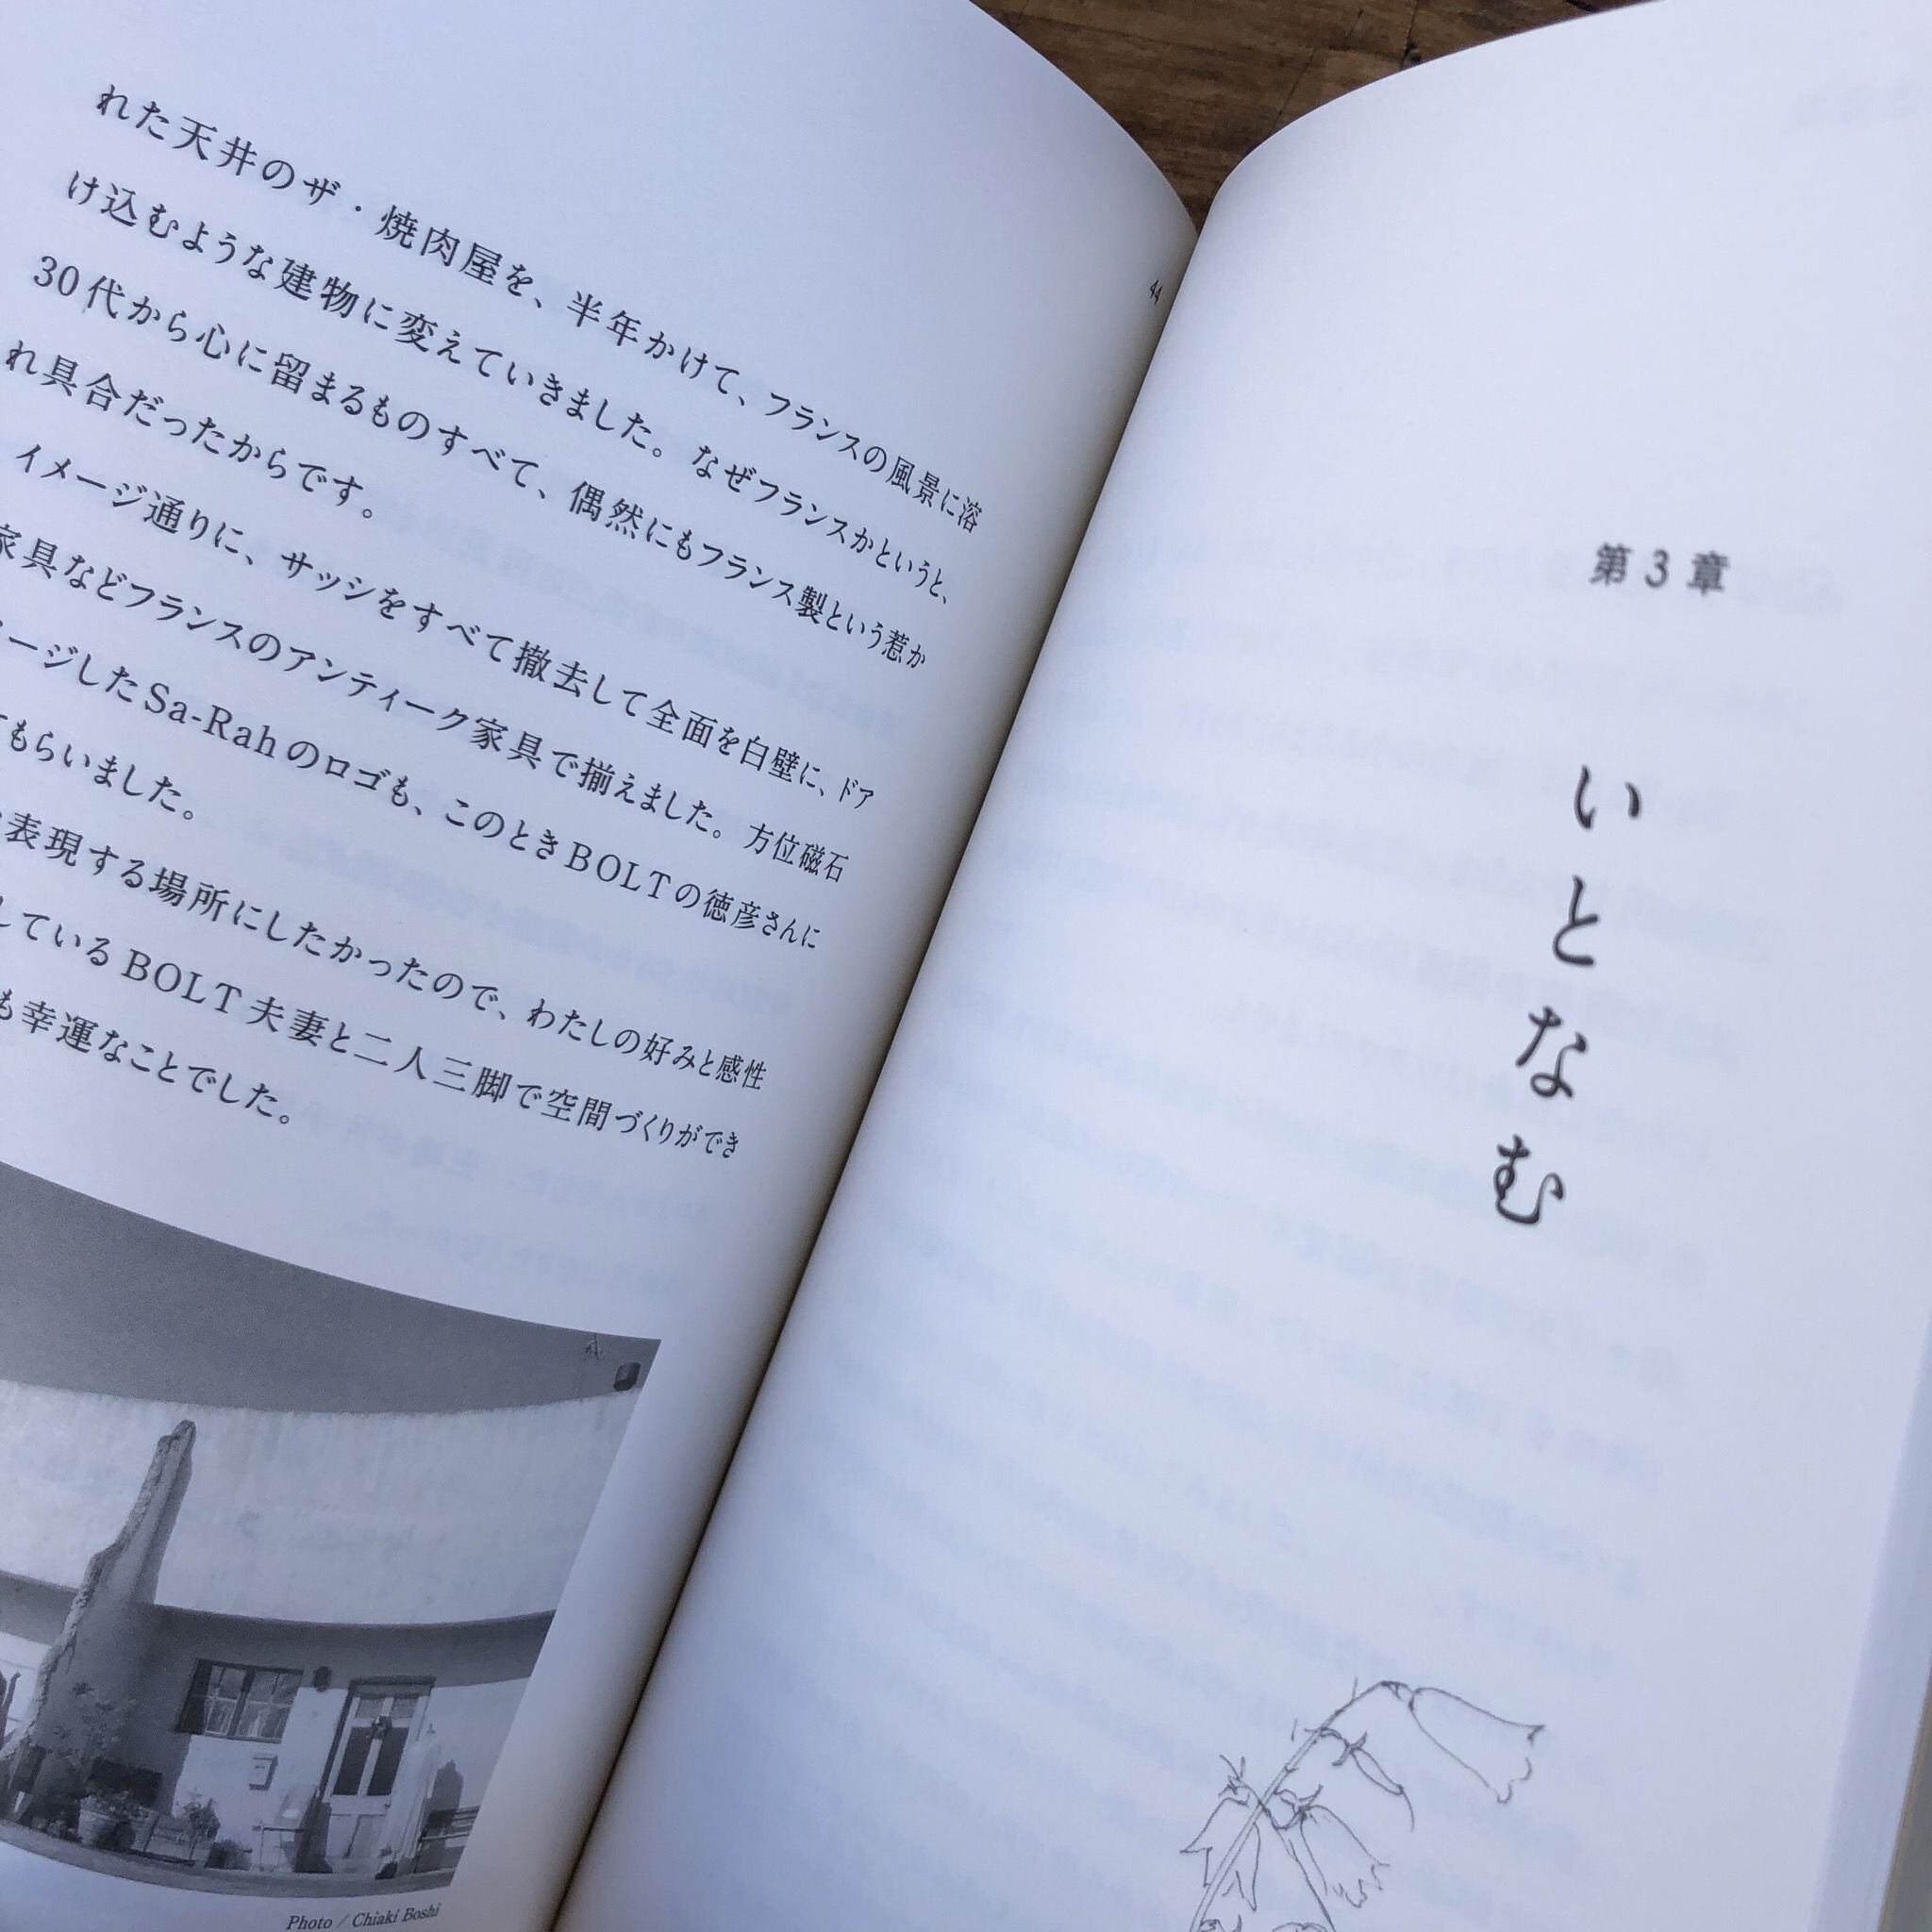 れた天井のザ・焼肉屋を、半年かけて、フランスの風景に溶
け込むような建物に変えていきました。なぜフランスかというと、
30代から心に留まるものすべて、偶然にもフランス製という惹か
れ具合だったからです。
イメージ通りに、サッシをすべて撤去して全面を白壁に、ドア
家具などフランスのアンティーク家具で揃えました。方位磁石
ージしたSa-Rahのロゴも、このときBOLTの徳彦さんに
てもらいました。
表現する場所にしたかったので、わたしの好みと感性
しているBOLT夫妻と二人三脚で空間づくりができ
も幸運なことでした。
Photo / Chiaki Boshi
44
第3章
いとなむ